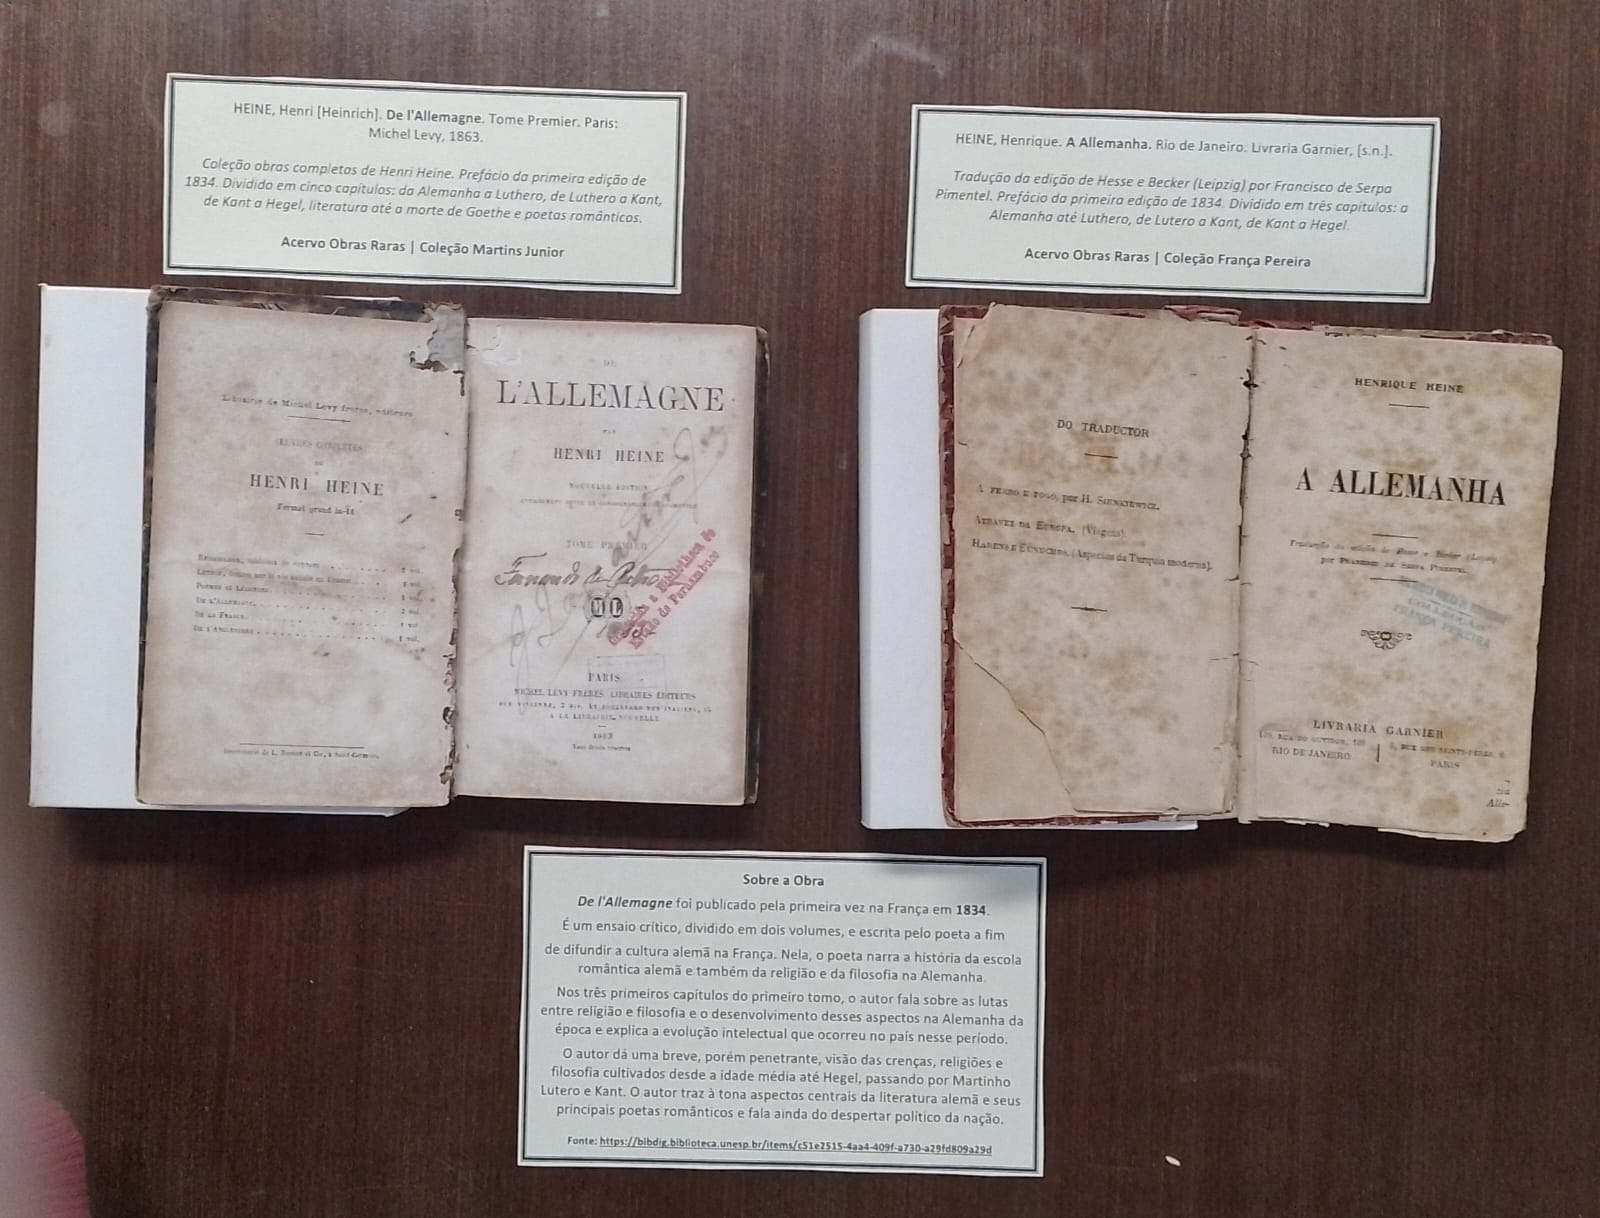 HEINE, Henri [Heinrich]. De l'Allemagne. Tome Premier. Paris:
Michel Levy, 1863.
Coleção obras completas de Henri Heine. Prefácio da primeira edição de
1834. Dividido em cinco capítulos: da Alemanha a Luthero, de Luthero a Kant,
de Kant a Hegel, literatura até a morte de Goethe e poetas românticos.
Acervo Obras Raras | Coleção Martins Junior
HEINE, Henrique. A Allemanha. Rio de Janeiro: Livraria Garnier, [s.n.].
Tradução da edição de Hesse e Becker (Leipzig) por Francisco de Serpa
Pimentel. Prefácio da primeira edição de 1834. Dividido em três capítulos: a
Alemanha até Luthero, de Lutero a Kant, de Kant a Hegel.
Acervo Obras Raras | Coleção França Pereira
Librairie de Michel Lévy frères, éditeurs
ŒUVRES COMPLÈTES
DE
HENRI HEINE
Format grand in-18
DE L'ALLEMAGNE
DE LA FRANCE
DE
L'ALLEMAGNE
PAR
HENRI HEINE
NOUVELLE ÉDITION
TOME PREMIER
PARIS
MICHEL LÉVY FRÈRES, LIBRAIRES ÉDITEURS
RUE VIVIENNE, 2 BIS, ET BOULEVARD DES ITALIENS, 15
A LA LIBRAIRIE NOUVELLE
1863
Tous droits réservés
Bibliotheca do
Estado de Pernambuco
DO TRADUCTOR
A FERRO E FOGO, por H. SIENKIEWICZ.
ATRAVEZ DA EUROPA. (Viagens).
HARENS E EUNUCHOS. (Aspectos da Turquia moderna).
HENRIQUE HEINE
A ALLEMANHA
Traducção da edição de Hesse e Becker (Leipzig)
por FRANCISCO DE SERPA PIMENTEL
FRANÇA PEREIRA
LIVRARIA GARNIER
109, RUA DO OUVIDOR, 109
RIO DE JANEIRO
6, RUE DES SAINTS-PÈRES, 6
PARIS
Alle-
Sobre a Obra
De l'Allemagne foi publicado pela primeira vez na França em 1834.
É um ensaio crítico, dividido em dois volumes, e escrita pelo poeta a fim
de difundir a cultura alemã na França. Nela, o poeta narra a história da escola
romântica alemã e também da religião e da filosofia na Alemanha.
Nos três primeiros capítulos do primeiro tomo, o autor fala sobre as lutas
entre religião e filosofia e o desenvolvimento desses aspectos na Alemanha da
época e explica a evolução intelectual que ocorreu no país nesse período.
O autor dá uma breve, porém penetrante, visão das crenças, religiões e
filosofia cultivados desde a idade média até Hegel, passando por Martinho
Lutero e Kant. O autor traz à tona aspectos centrais da literatura alemã e seus
principais poetas românticos e fala ainda do despertar político da nação.
Fonte: https://bibdig.biblioteca.unesp.br/items/c51e2515-4aa4-409f-a730-a29fd809a29d